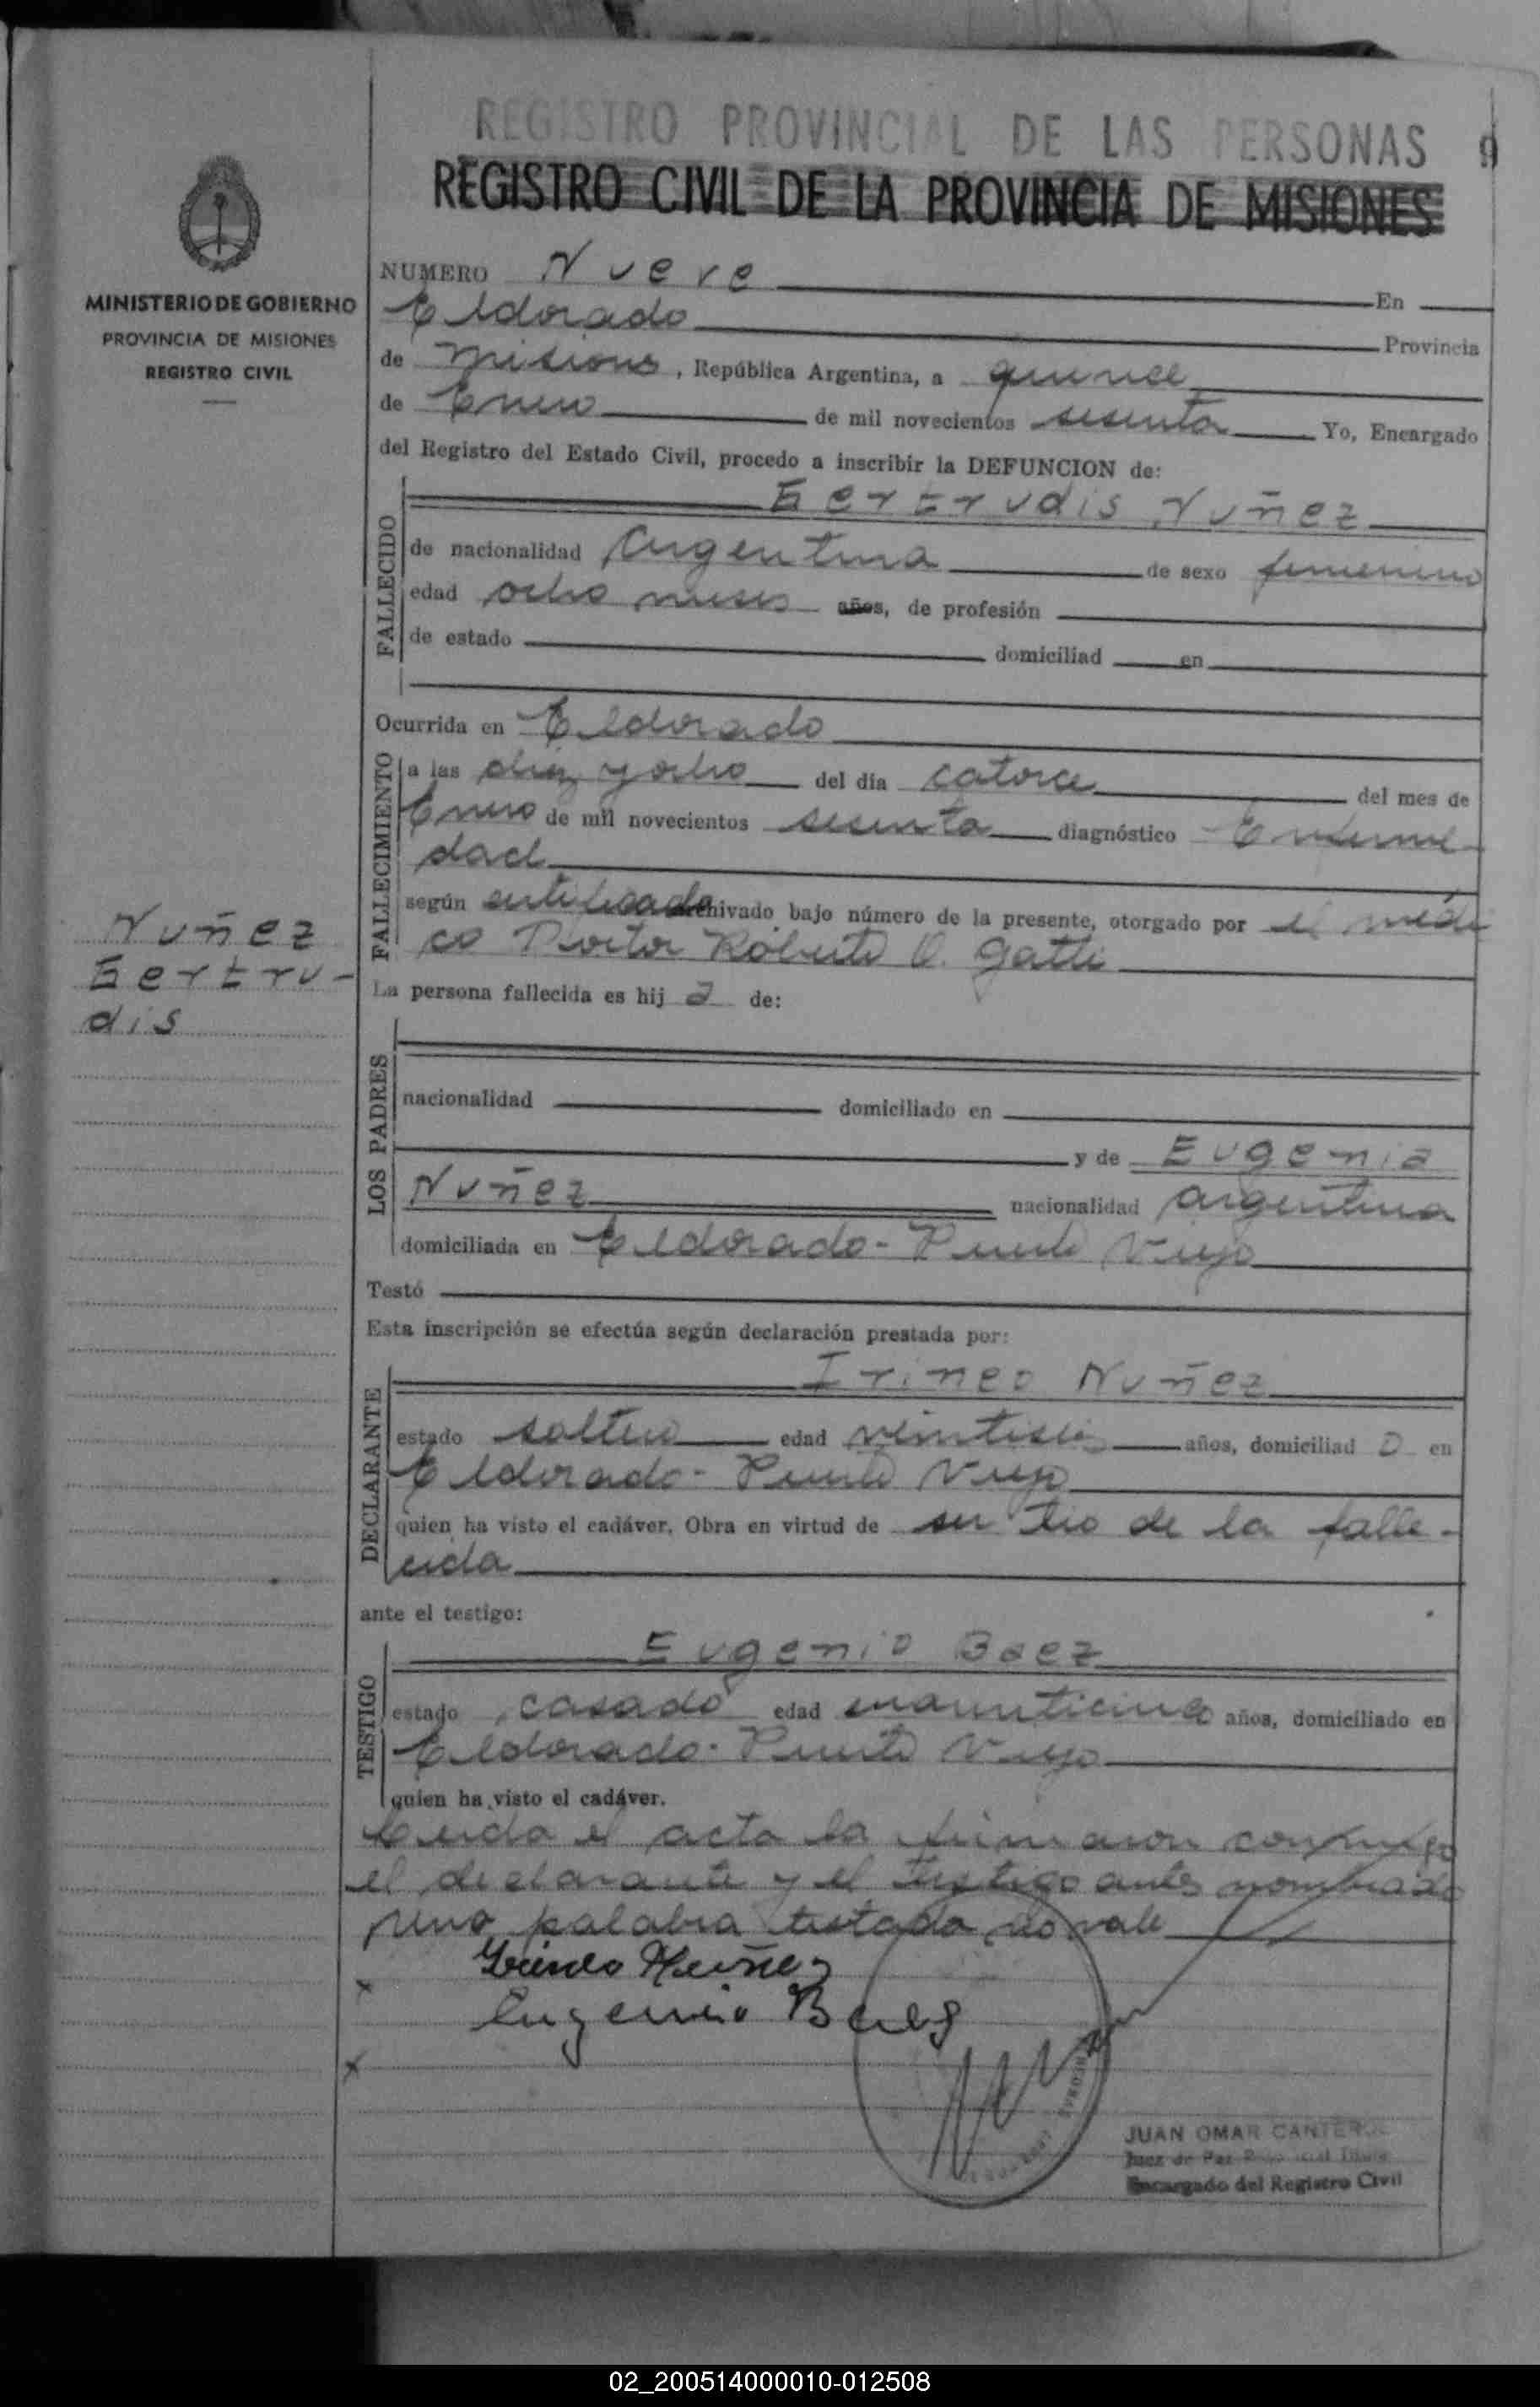 REGISTRO PROVINCIAL DE LAS PERSONAS 9
REGISTRO CIVIL DE LA PROVINCIA DE MISIONES
MINISTERIO DE GOBIERNO
PROVINCIA DE MISIONES
REGISTRO CIVIL
NUMERO Nueve En
Eldorado Provincia
de Misiones, República Argentina, a quince
de Enero de mil novecientos sesenta Yo, Encargado
del Registro del Estado Civil, procedo a inscribir la DEFUNCION de:
FALLECIDO
Gertrudis Nuñez
de nacionalidad Argentina de sexo femenino
edad ocho meses años, de profesión
de estado domiciliad en
Ocurrida en Eldorado
FALLECIMIENTO
a las diez y ocho del día catorce del mes de
Enero de mil novecientos sesenta diagnóstico Enferme-
dad
según certificado archivado bajo número de la presente, otorgado por el médi
co Doctor Roberto O. Gatti
Nuñez
Gertru-
dis
La persona fallecida es hij a de:
LOS PADRES
nacionalidad domiciliado en
y de Eugenia
Nuñez nacionalidad argentina
domiciliada en Eldorado - Puerto Viejo
Testó
Esta inscripción se efectúa según declaración prestada por:
DECLARANTE
Irineo Nuñez
estado soltero edad veintiseis años, domiciliad o en
Eldorado - Puerto Viejo
quien ha visto el cadáver. Obra en virtud de ser tio de la falle-
cida
ante el testigo:
TESTIGO
Eugenio Baez
estado casado edad cuarenticinco años, domiciliado en
Eldorado - Puerto Viejo
quien ha visto el cadáver.
Leida el acta la firmaron conmigo
el declarante y el testigo antes nombrado
una palabra testada no vale
x Irineo Nuñez
Eugenio Baez
x
JUAN OMAR CANTERO
Juez de Paz
Encargado del Registro Civil
02_200514000010-012508